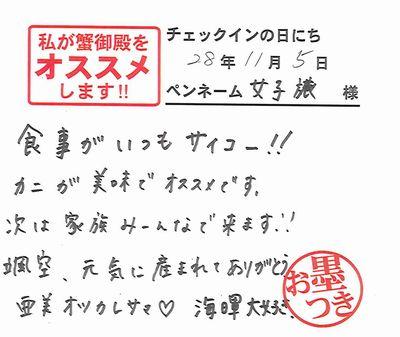 私が蟹御殿を
オススメ
します!!
チェックインの日にち
28年11月5日
ペンネーム 女子旅 様
食事がいつもサイコー!!
カニが美味でオススメです。
次は家族みーんなで来ます!!
颯空、元気に産まれてありがとう
亜美オツカレサマ♡ 海暉大好き。
お墨つき